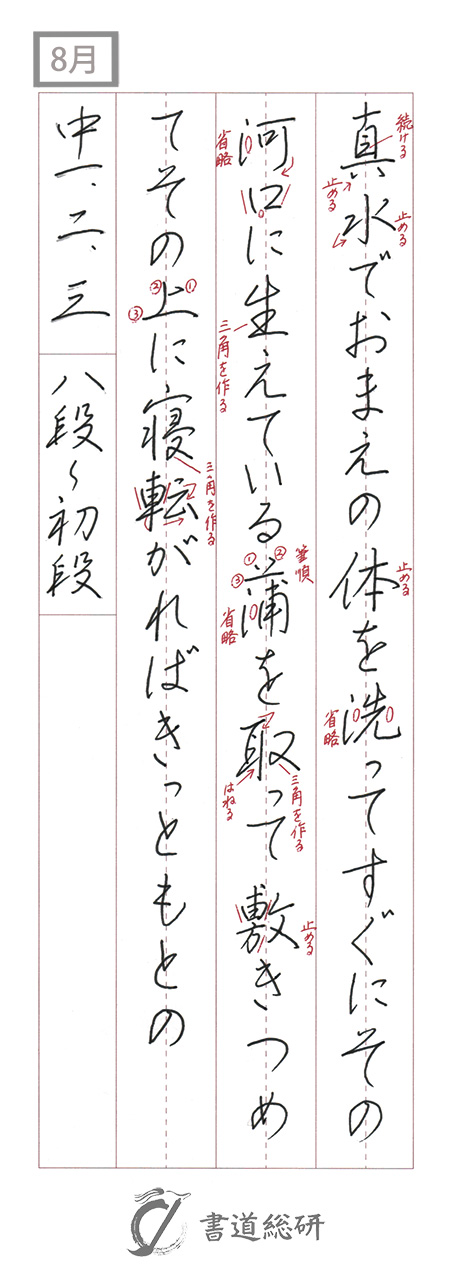 8月
真水でおまえの体を洗ってすぐにその
続ける
止める
止める
止める
省略
河口に生えている蒲を取って敷きつめ
省略
三角を作る
筆順
①
②
③
省略
はねる
三角を作る
止める
てその上に寝転がればきっともとの
①
②
③
三角を作る
中一、二、三
八段〜初段
書道総研